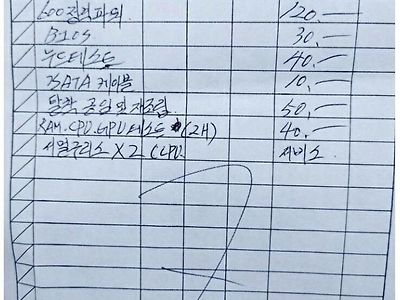 600정격파워 120.-
BIOS 30.-
누드테스트 40.-
SATA 케이블 10.-
탈착 공임 및 재조립 50.-
RAM.CPU.GPU 테스트 (2H) 40.-
서멀구리스 X2 CPU 서비스